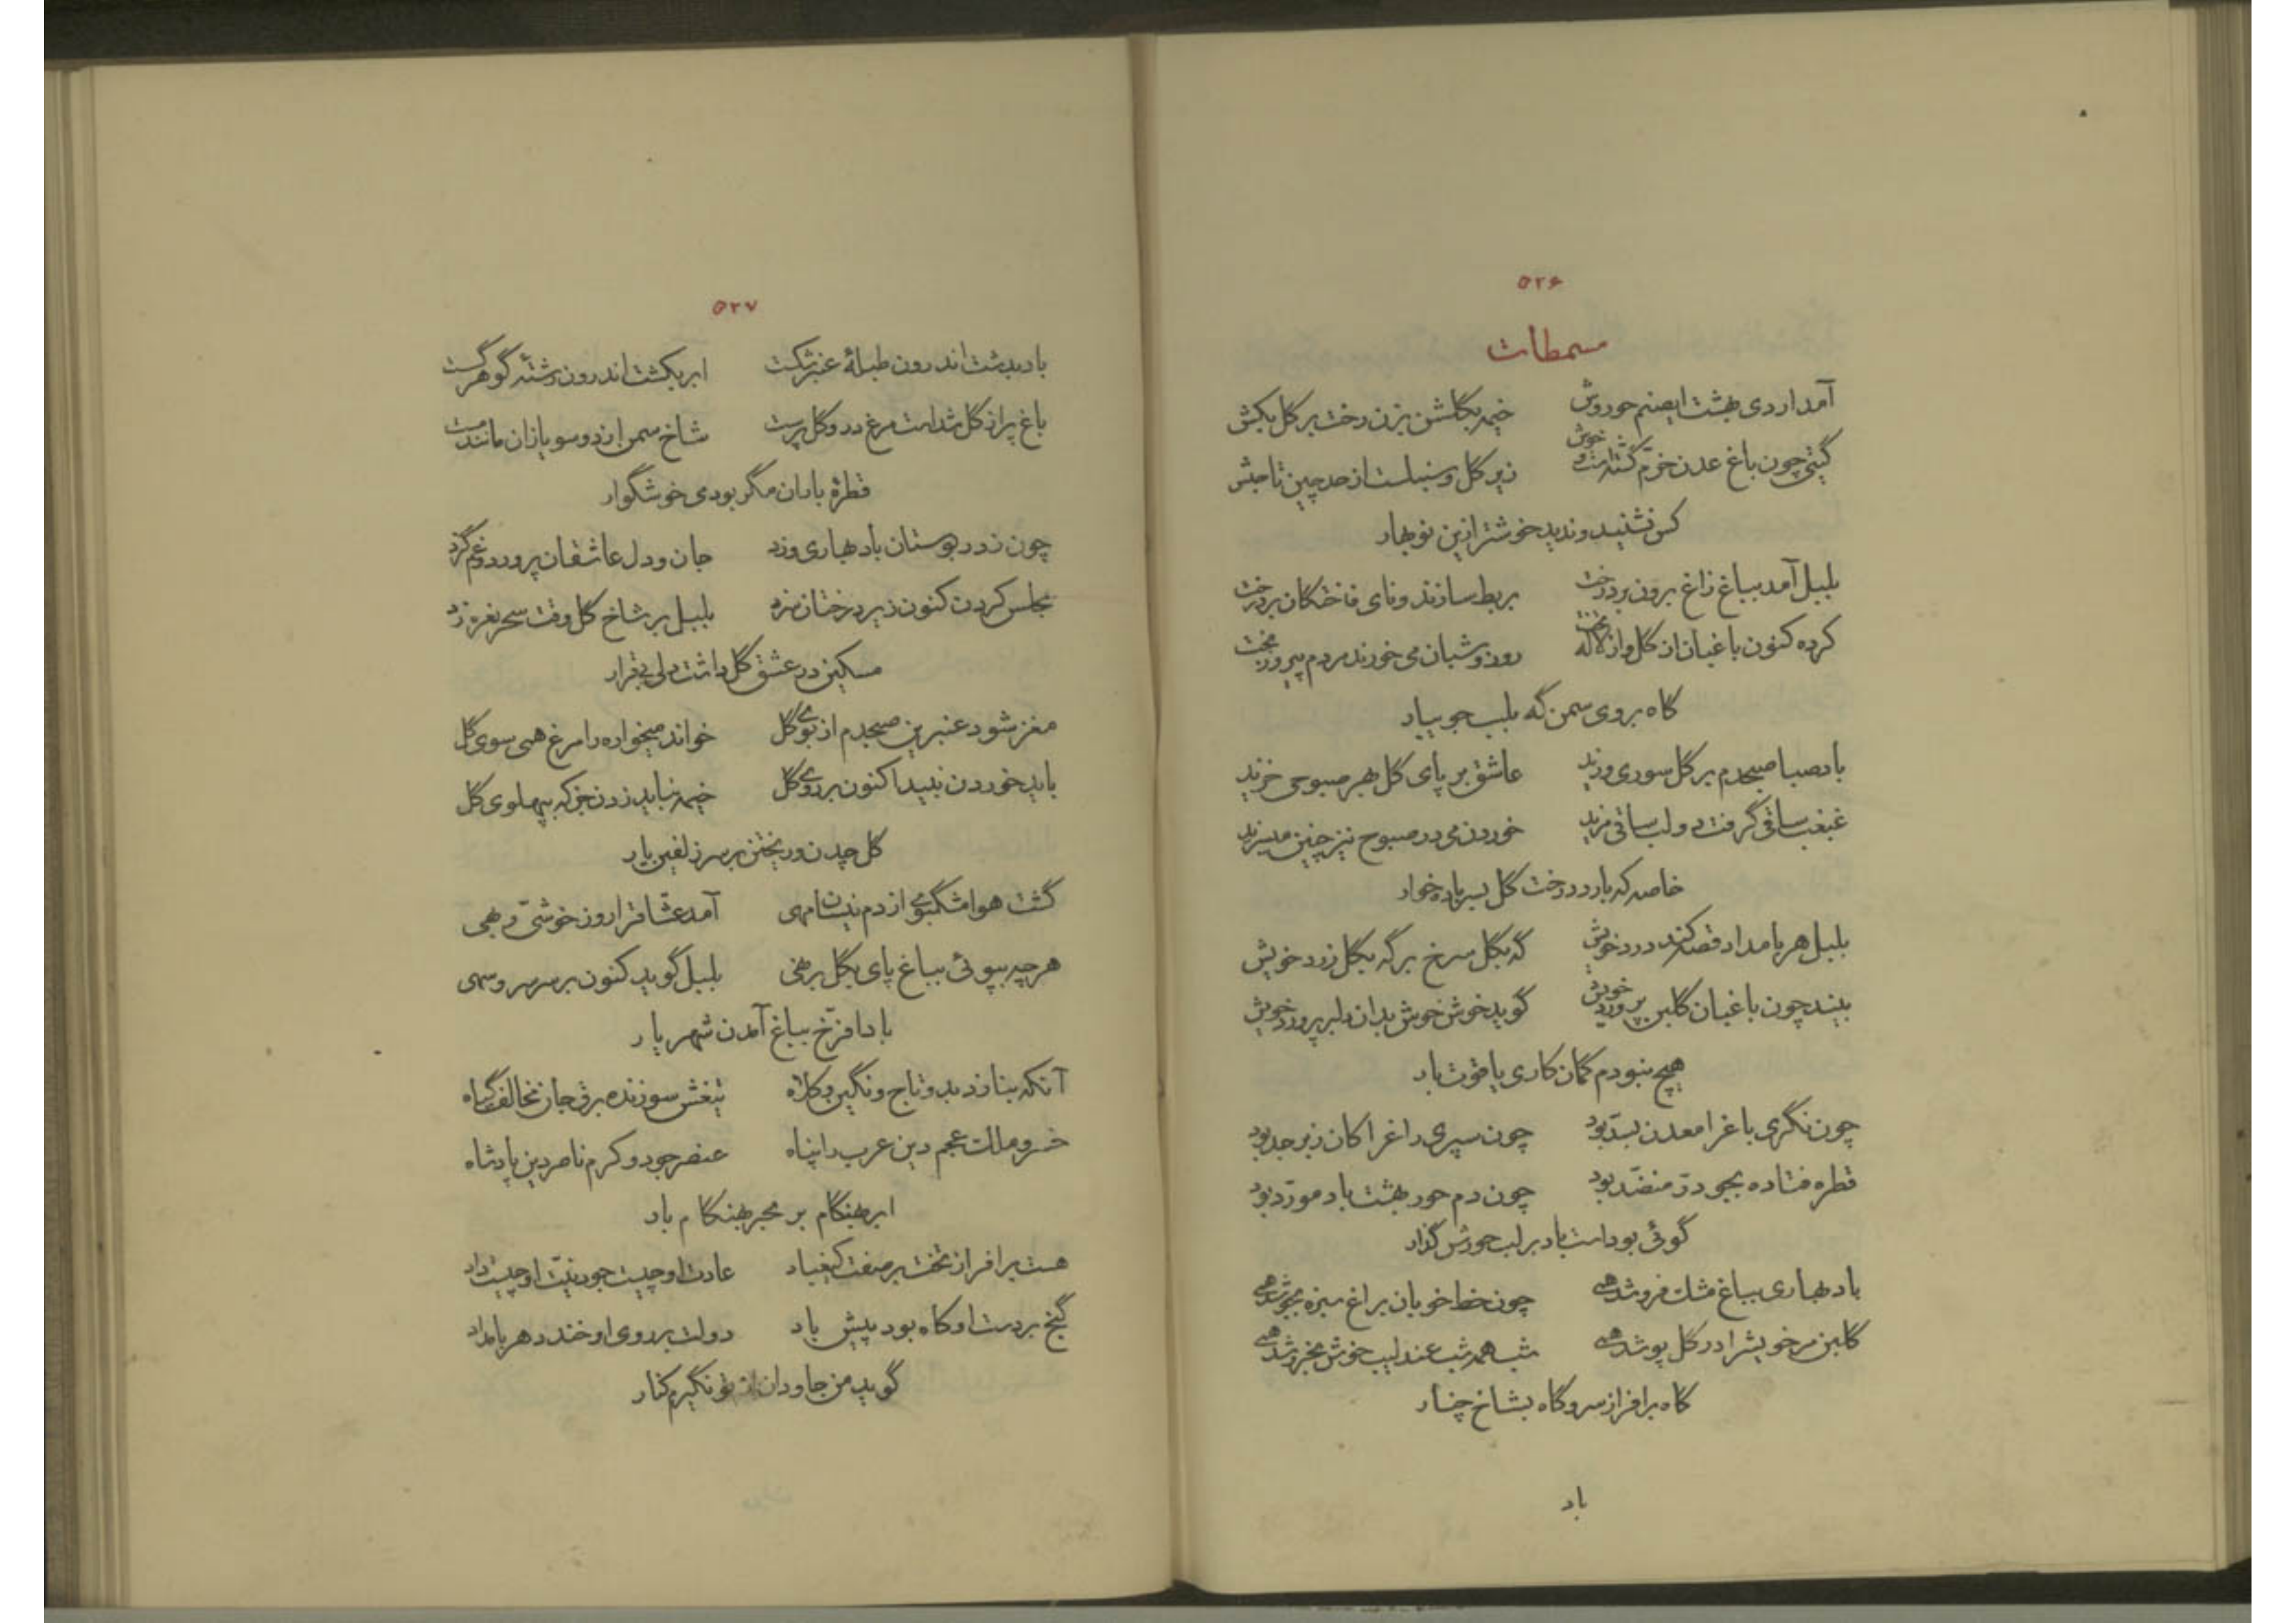 ۵۲۶
مسمطات
آمد اردی بهشت ایصنم حوروش خیمه بگلشن بزن رخت بر گل بکش
گیتی چون باغ عدن خرّم گشته است و خوش زیر گل و سنبلست از حد چین تا حبش
کس نشنید و ندید خوشتر ازین نوبهار
بلبل آمد بباغ زاغ برون برد رخت بربط سازند و نای فاختگان بر درخت
کرده کنون باغبان از گل و از لاله تخت روز و شبان می خورند مردم پیروز بخت
گاه بروی سمن گه بلب جویبار
باد صبا صبحدم بر گل سوری وزید عاشق بر پای گل بهر صبوحی خزید
غبغب ساقی گرفت و لب ساقی مزید خوردن می در صبوح نیز چنین میسزید
خاصه که بارد درخت گل بسر باده خوار
بلبل هر بامداد قصه کند درد خویش گه بگل سرخ بر گه بگل زرد خویش
بیند چون باغبان گلبن پرورد خویش گوید خوش خوش بدان دلبر پرورد خویش
هیچ نبودم گمان کاری یاقوت بار
چون نگری باغ را معدن بسّد بود چون سپری راغ را کان زبرجد بود
قطره فتاده بجوی درّ منضّد بود چون دم حور بهشت باد مورّد بود
گوئی بوداست باد بر لب حورش گذار
باد بهاری بباغ مشک فروشد همی چون خط خوبان براغ سبزه بجوشد همی
گلبن مر خویشرا در گل پوشد همی شب همه شب عندلیب خوش بخروشد همی
گاه بر افراز سرو گاه بشاخ چنار
باد
۵۲۷
باد بدشت اندرون طبلهٔ عنبر شکست ابر بکشت اندرون رشتهٔ گوهر گسست
باغ پر از گل شداست مرغ در و گل پرست شاخ سمن ز دو سو یازان مانند مست
قطرهٔ باران مگر بودی خوشگوار
چون ز در بوستان باد بهاری وزد جان و دل عاشقان پرورد و غم گزد
مجلس کردن کنون زیر درختان مزد بلبل بر شاخ گل وقت سحر نعره زد
مسکین در عشق گل داشت دلی بیقرار
مغز شود عنبرین صبحدم از بوی گل خواند میخواره را مرغ همی سوی گل
باید خوردن نبید اکنون بر روی گل خیمه نباید زدن جز که بپهلوی گل
گل چدن و ریختن بر سر زلفین یار
گشت هوا مشکبوی از دم نیسان مهی آمد عشّاق را روز خوشیّ و بهی
هر چه بپوئی بباغ پای بگل بر نهی بلبل گوید کنون بر سر سرو سهی
بادا فرّخ بباغ آمدن شهریار
آنکه بنازد بدو تاج و نگین و کلاه تیغش سوزنده برق جان مخالف گیاه
خسرو ملک عجم دین عرب را پناه عنصر جود و کرم ناصر دین پادشاه
ابر بهنگام بر بحر بهنگام بار
هست بر افراز تخت بر صفت کیقباد عادت او چیست جود نیّت او چیست داد
گنج بر دست او کاه بود پیش باد دولت بر روی او خندد هر بامداد
گوید من جاودان از تو نگیرم کنار